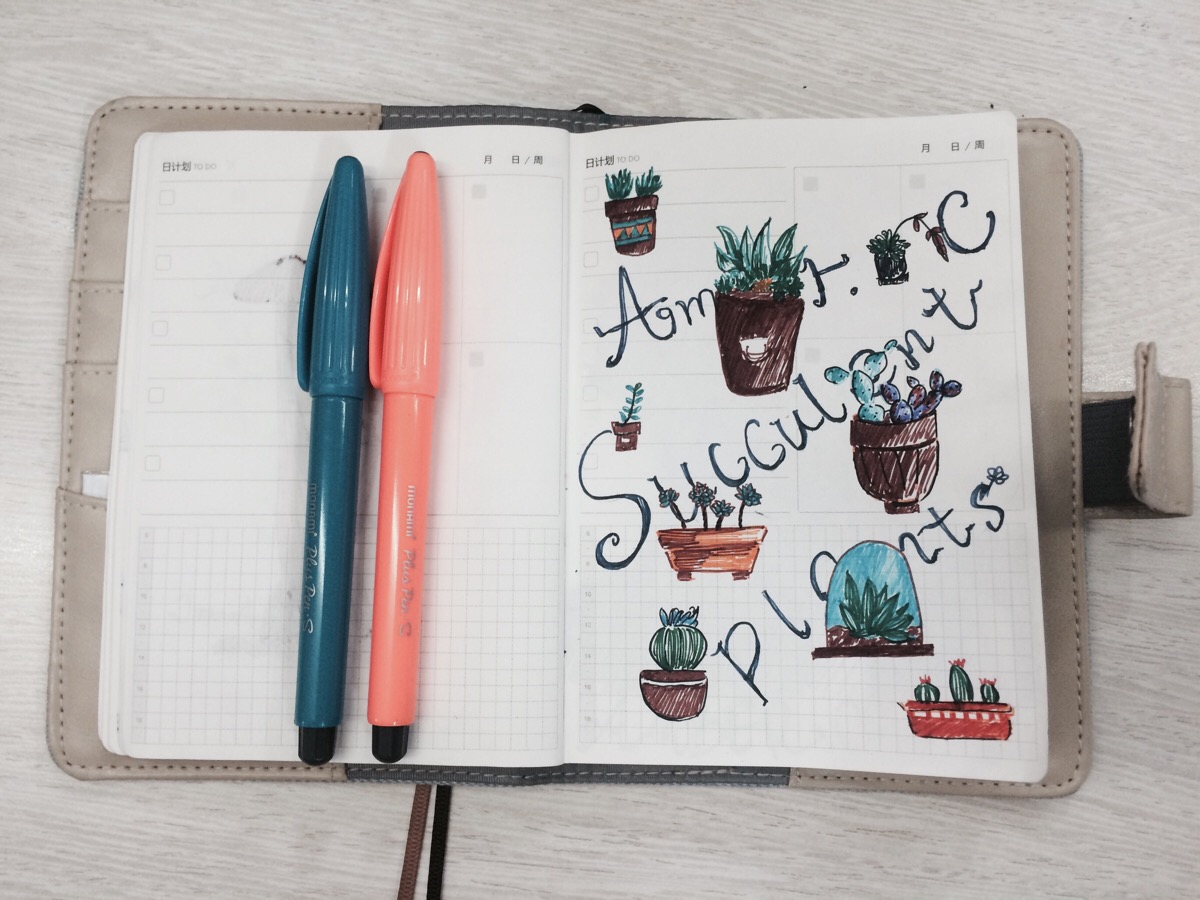 日计划 TO DO 月 日 / 周
monami Plus Pen S
monami Plus Pen S
日计划 TO DO 月 日 / 周
Succulent
Plants